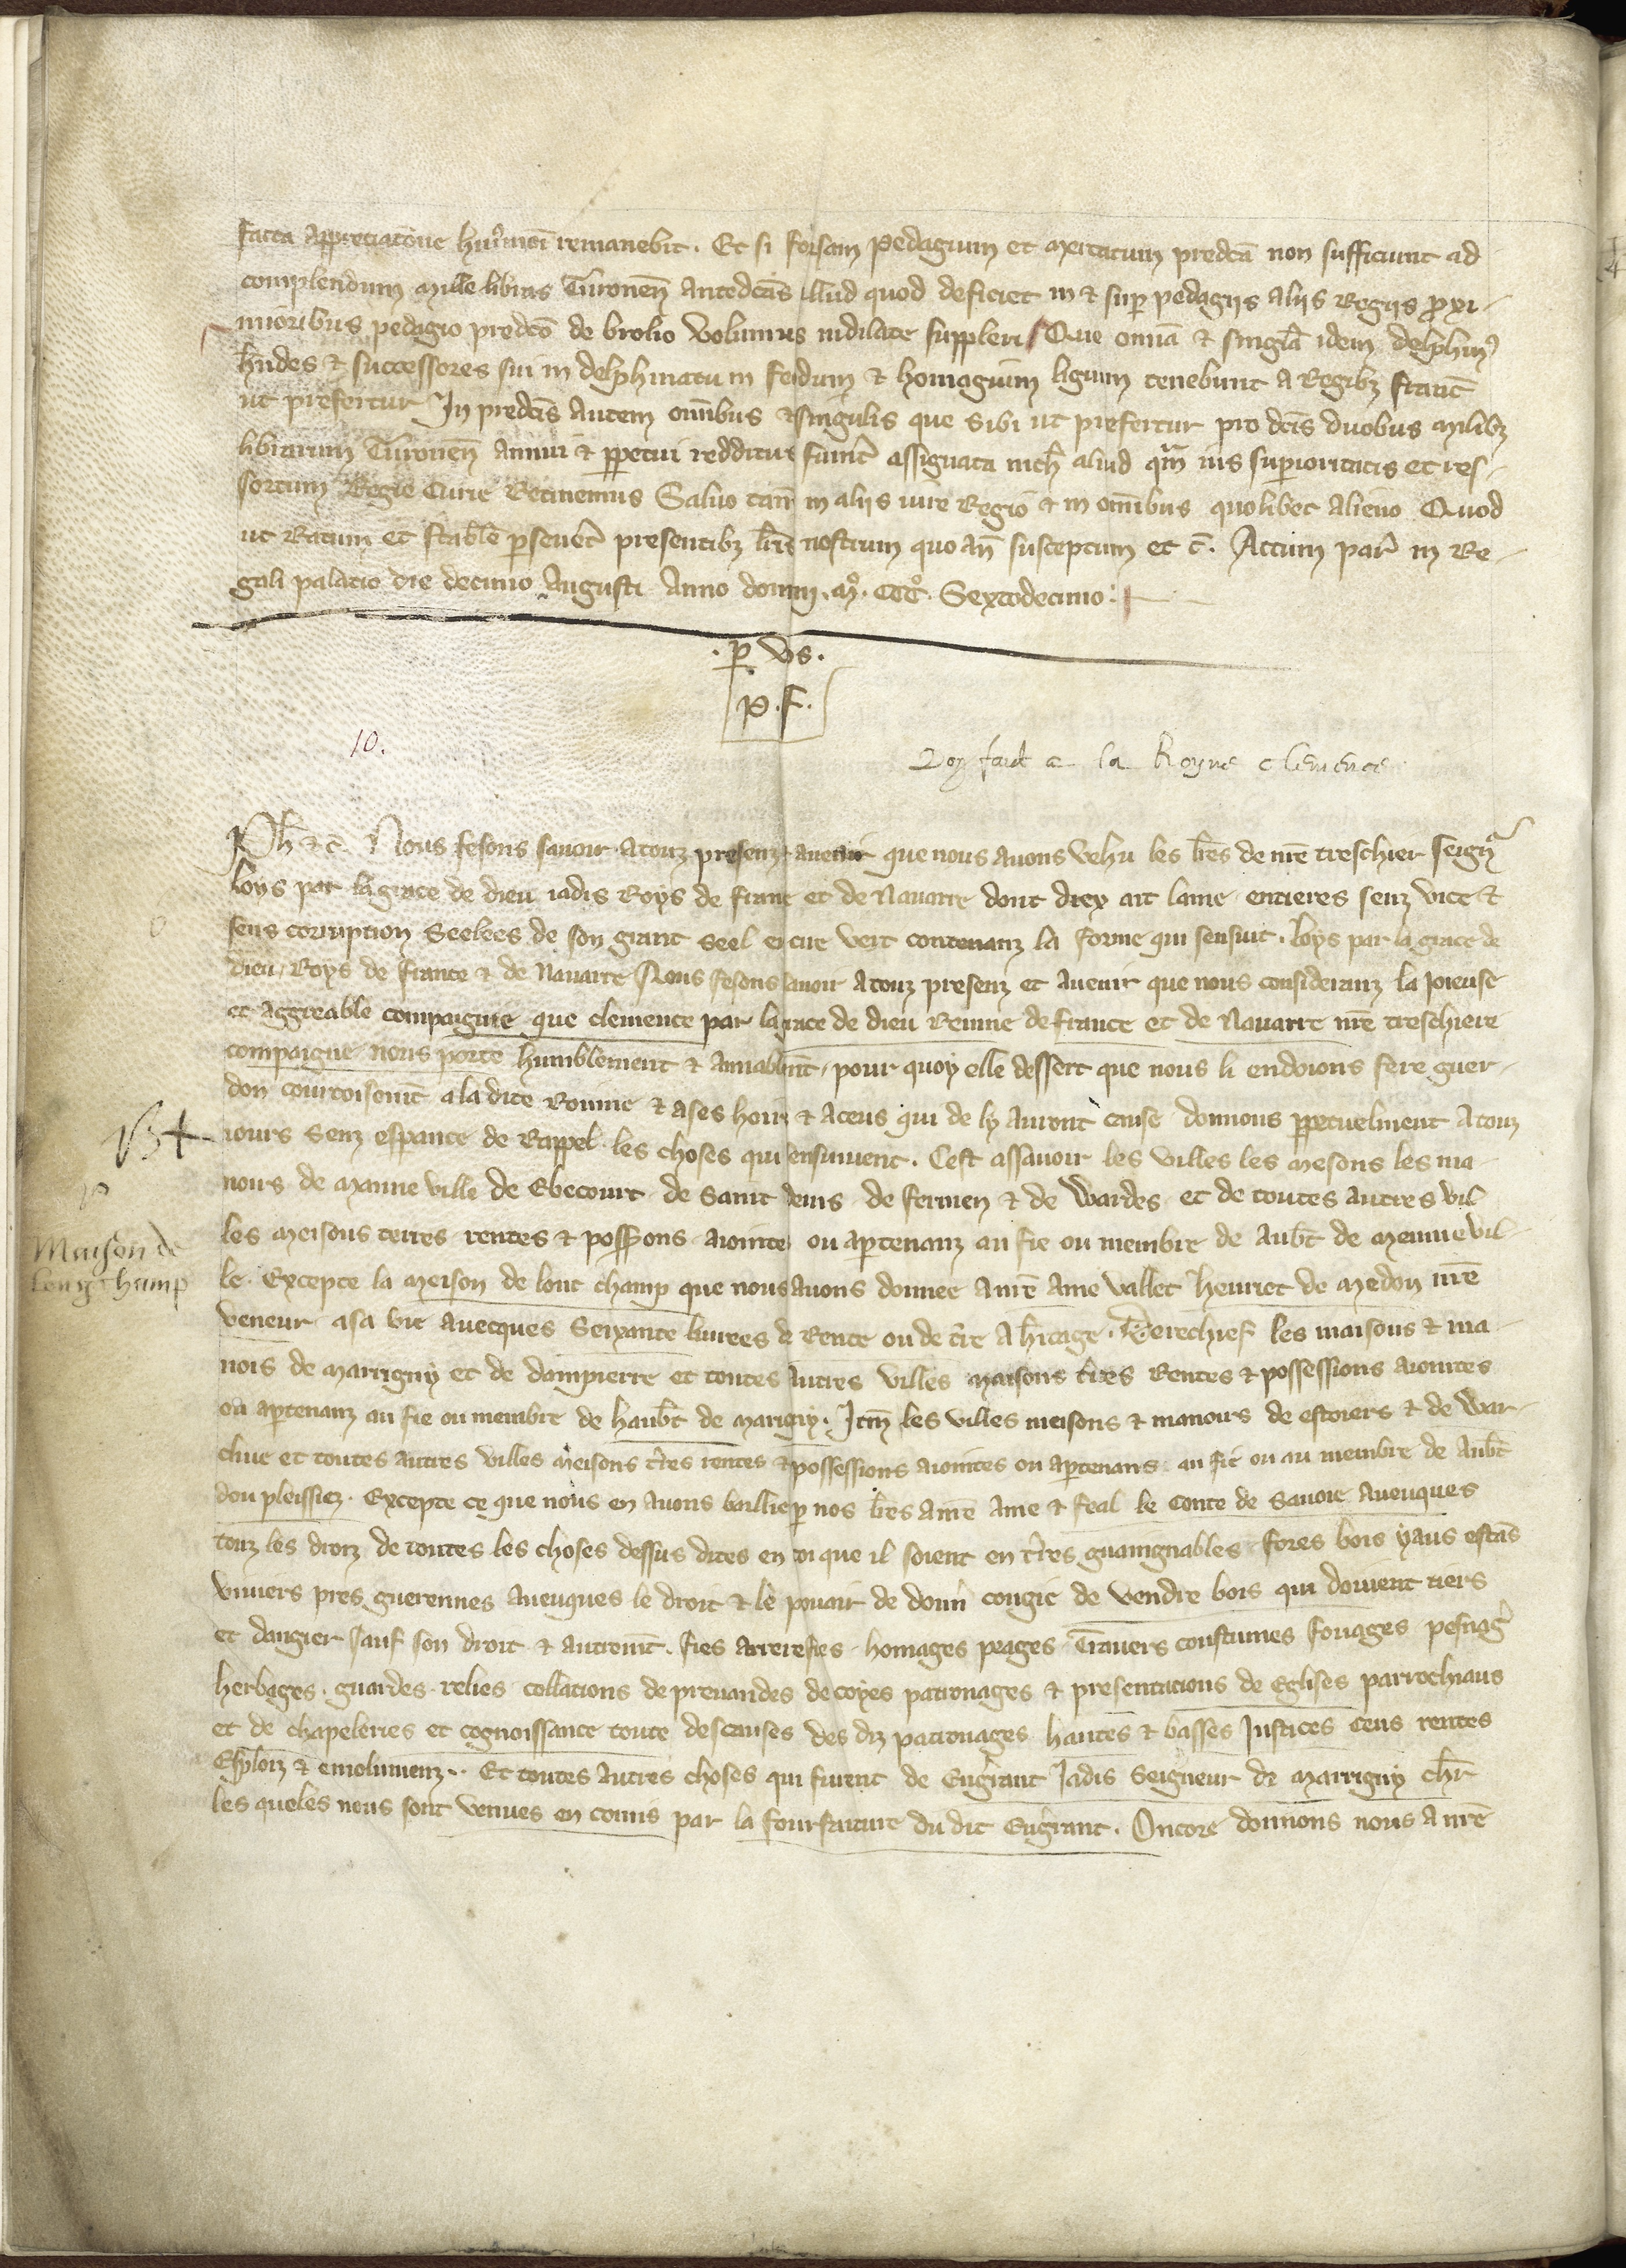 facta appreciacione huiusmodi remanebit. Et si forsam pedagium et mercatum predcā non sufficiunt ad
complendum mille libras Turonen̄ antedcās illud quod deficiet in & sup pedagiis aliis Regiis proxi-
mioribus pedagio predcō de brolio volumus indilate suppleri Que omnia & singla idem delphin9
hrides & successores sui in delphinatu in feudum & homagium ligium tenebunt a Regibz francie
ut prefertur In predcīs autem omībus & singulis que sibi ut prefertur pro dcīs duobus milibz
librarum Turonen̄ annui & ppetui redditus fuerīt assignata nich aliud qm̄ ius superioritatis et res-
sortum Regie Curie Retinemus Salvo tam̄ in aliis iure Regio & in omībus quolibet alieno Quod
ut Ratum et stabile pseueret presentibz lrīs nostrum quo an̄ susceptum et c̄. Actum par in Re-
gali palacio die decimo Augusti Anno domini. mo. CCCo. Sextodecimo.
. p vos.
P. F.
10.
Don fait a la Royne clemence
Ph & c̄. Nous fesons savoir a touz presenz & avenir que nous avons vehu les lrēs de nrē treschier seignr
Loys par la grace de dieu iadis Roys de france et de Navarre dont diex ait lame entieres senz vice &
sens corruption Seelees de son grant seel en cire vert contenanz la forme qui sensuit. Loys par la grace de
dieu Roys de france & de Navarre Nous fesons savoir a touz presenz et avenir que nous consideranz la joieuse
et aggreable compaignie que clemence par la grace de dieu Reinne de france et de Navarre nrē treschiere
compaigne nous porte humblement & amiablemt, pour quoy elle dessert que nous li endoions fere guer-
don courtoisemt a la dite Roinne & a ses hoirs & a ceus qui de ly auront cause donnons ppetuelment a touz
iours Senz esperance de Rappel les choses qui ensuivent. Cest assavoir les villes les mesons les ma-
noirs de Manneville de Ebecourt de Saint Denis de fermen & de Wardes et de toutes autres vil
les meisons terres rentes & possions aiointes ou apartenanz au fie ou membre de Aubt de Menneuil-
le. Excepte la meison de lonc champ que nous avons donnee a nrē ame vallet henriet de Medon nrē
veneur a sa vie avecques Seixante livrees de Rente ou de tre a hitage. Derechief les maisons & ma-
nois de Marrigny et de dampierre et toutes autres villes maisons tres Rentes & possessions aiointes
ou apartenanz au fie ou membre de haubt de Marigny. Itm̄ les villes meisons & manoirs de estoiers & de War-
clive et toutes autres villes meisons tres rentes & possessions aiointes ou apartenans au fie ou au membre de Aubt
dou pleissiez. Excepte ce que nous en avons baillie p nos lrēs a nrē ame & feal le Conte de Savoie aveuques
touz les droiz de toutes les choses dessus dites en coi que il soient en tres guaingnables fores bois yaus estans
viviers pres guerennes aveuques le droit & le povair de donner congie de vendre bois qui doivent tiers
et dangier sauf son droit & autremt. fies arrerefies homages peages Travers coustumes fouages pesnages
herbages. guardes reliés collations de prevandes de coyes patronages & presentacions de Eglises parrochiaus
et de chapeleries et cognoissance toute des causes des diz patronages hautes & basses Justices Cens rentes
Esploiz & emolumenz.. Et toutes autres choses qui furent de Engerant Jadis Seigneur de Marrigny chr
les queles nous sont venues en comis par la fourfaiture du dit Engerant. Oncore donnons nous a nrē
Maison de
Longchamp